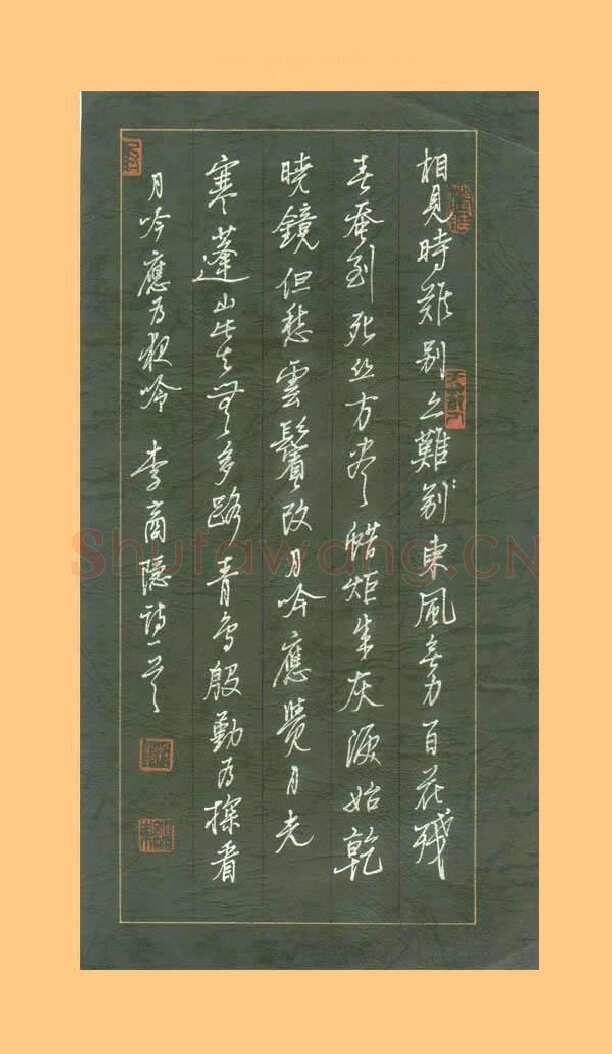 相見時难别亦難别東風无力百花残
春蚕到死丝方尽蜡炬成灰淚始乾
曉鏡但愁雲鬢改月吟應覺月光
寒蓬山此去無多路青鳥殷勤为探看
月吟應为夜吟 李商隐诗一首
Shufawang.CN